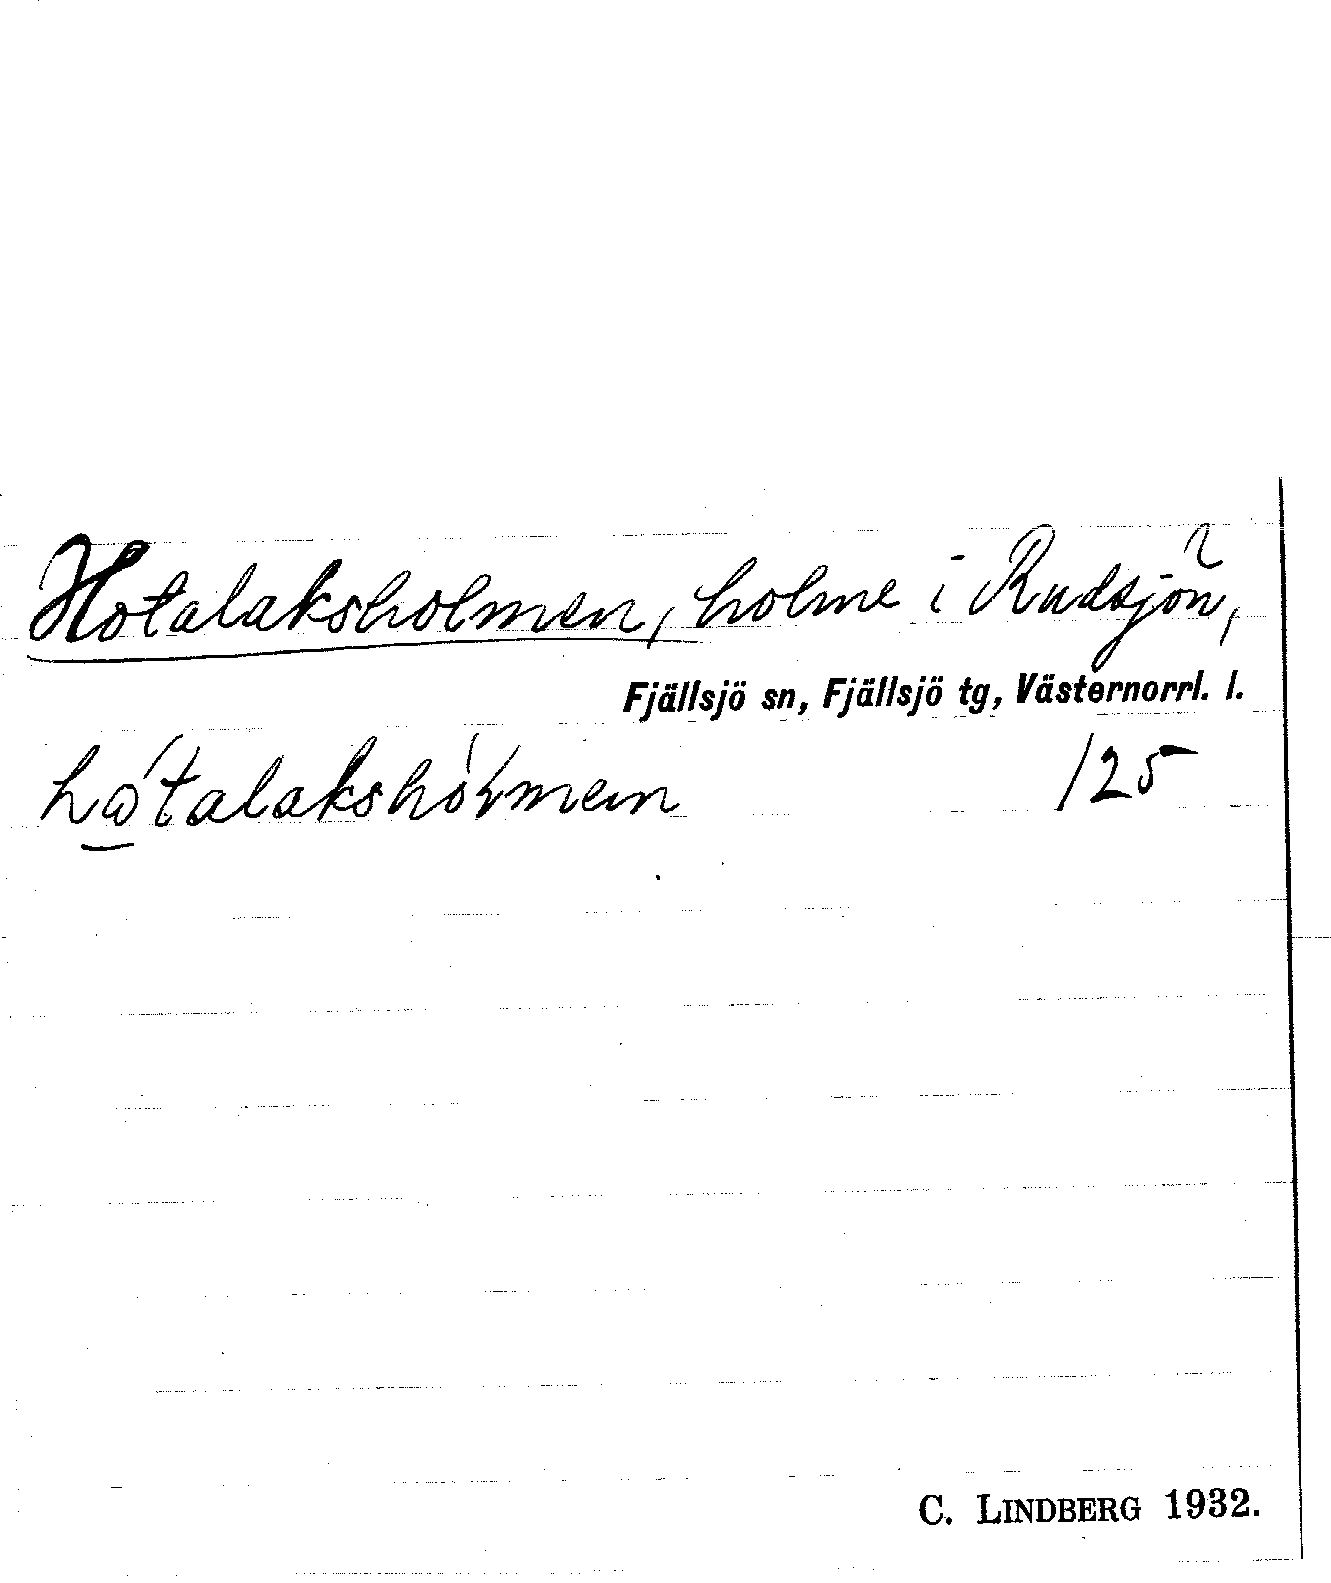 Hotalaksholmen, holme i Rudsjön,
Fjällsjö sn, Fjällsjö tg, Västernorrl. l.
125
C. LINDBERG 1932.